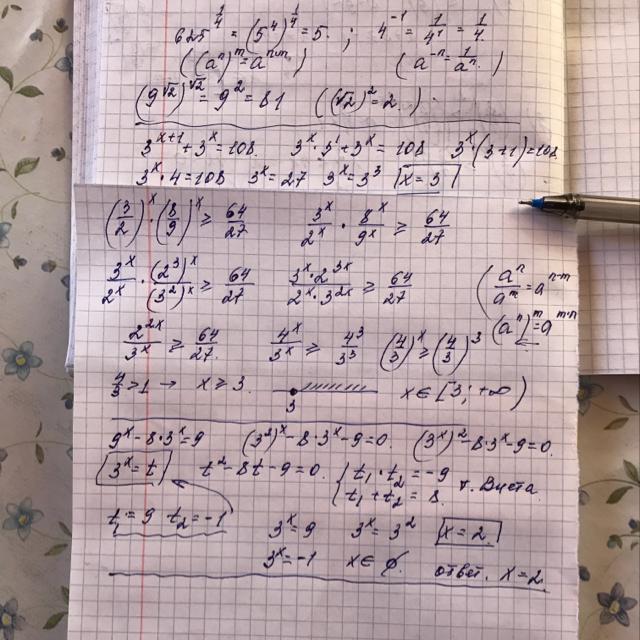 625^{1/4} = (5^4)^{1/4} = 5. ; 4^{-1} = 1/4^1 = 1/4.
((a^n)^m = a^{n·m}) (a^{-n} = 1/a^n.)
(9^{√2})^{√2} = 9^2 = 81 ((√2)^2 = 2.)
3^{x+1} + 3^x = 108. 3^x · 3^1 + 3^x = 108 3^x · (3+1) = 108
3^x · 4 = 108 3^x = 27 3^x = 3^3 x = 3
(3/2)^x · (8/9)^x ≥ 64/27 3^x/2^x · 8^x/9^x ≥ 64/27
3^x/2^x · (2^3)^x/(3^2)^x ≥ 64/27 3^x · 2^{3x}/2^x · 3^{2x} ≥ 64/27 (a^n/a^m = a^{n-m}
(a^n)^m = a^{m·n})
2^{2x}/3^x ≥ 64/27. 4^x/3^x ≥ 4^3/3^3 (4/3)^x ≥ (4/3)^3
4/3 > 1 → x ≥ 3. 3 x ∈ [3; +∞)
9^x - 8·3^x = 9 (3^2)^x - 8·3^x - 9 = 0. (3^x)^2 - 8·3^x - 9 = 0.
3^x = t t^2 - 8t - 9 = 0. { t_1 · t_2 = -9
t_1 + t_2 = 8. т. Виета
t_1 = 9 t_2 = -1 3^x = 9 3^x = 3^2 x = 2
3^x = -1 x ∈ ∅. ответ. x = 2.